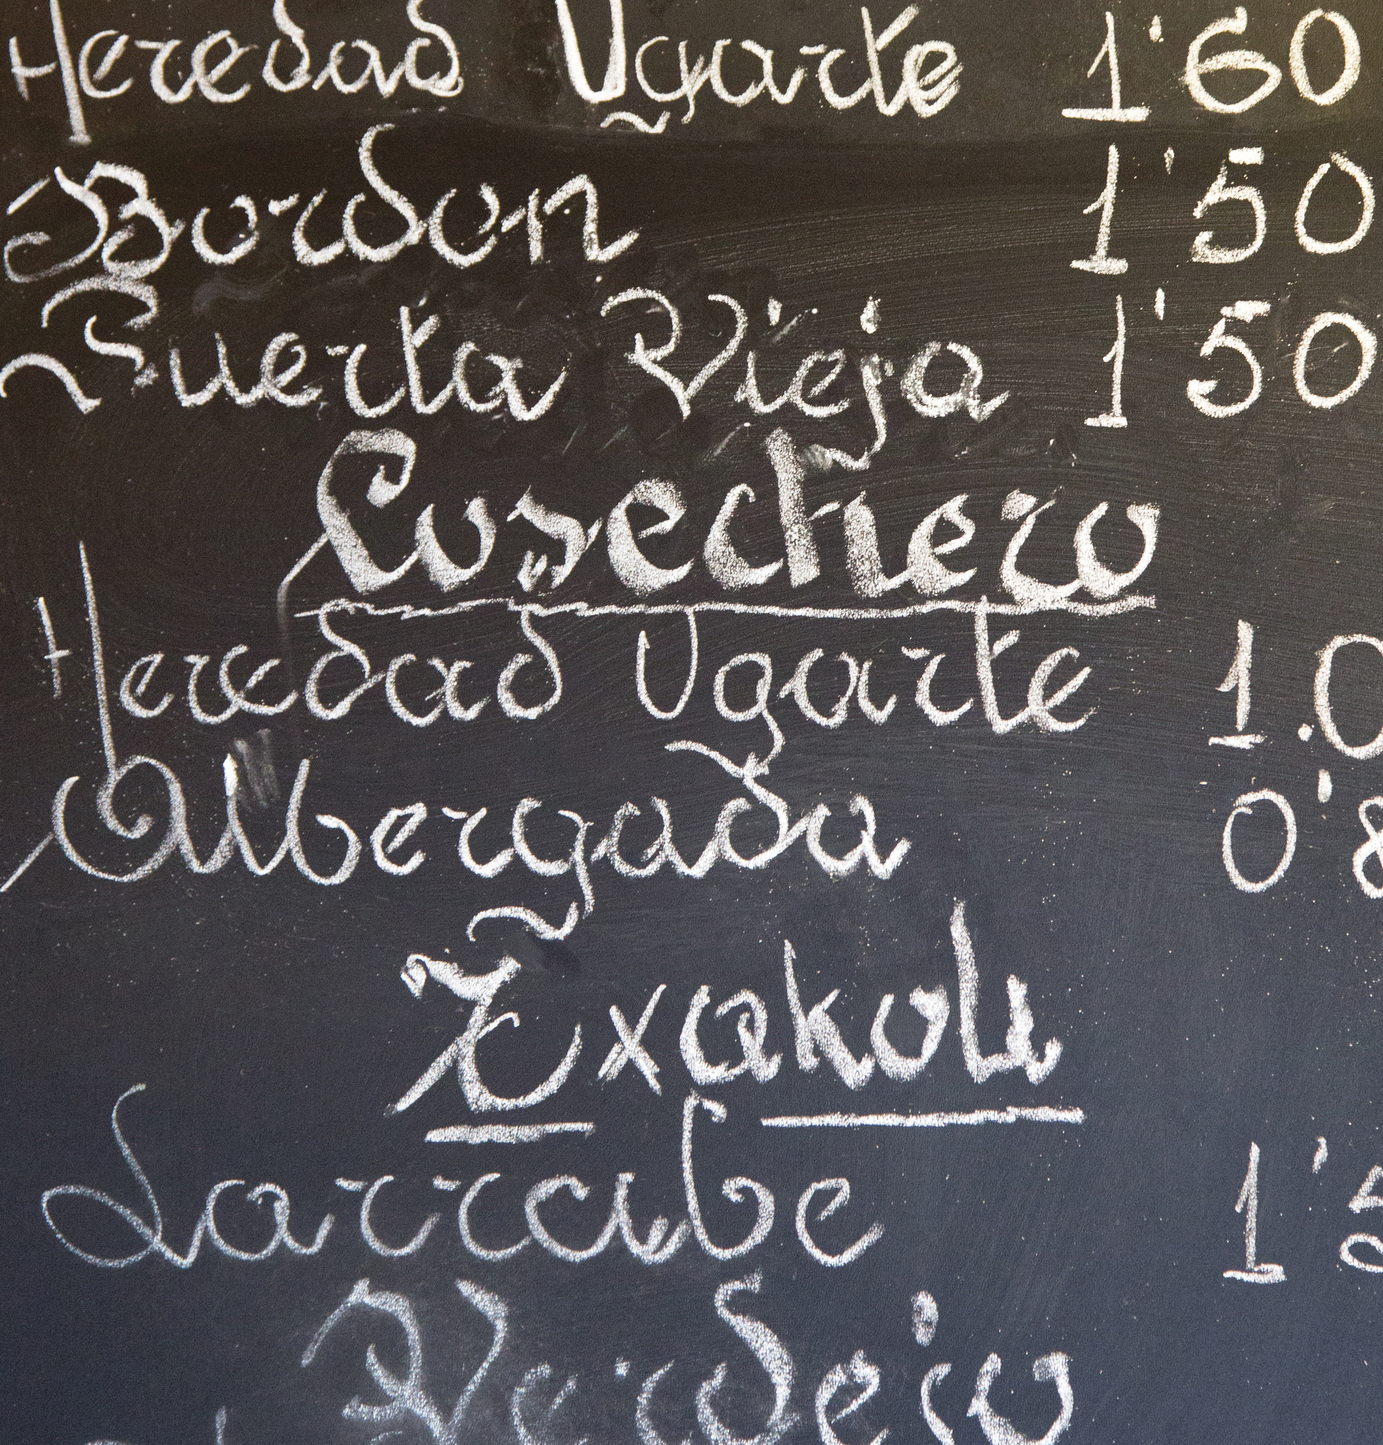 Heredad Ugarte 1'60
Bordon 1'50
Puerta Vieja 1'50
Cosechero
Heredad Ugarte 1.0
Albergada 0'8
Txakoli
Larrabe 1'5
Verdejo